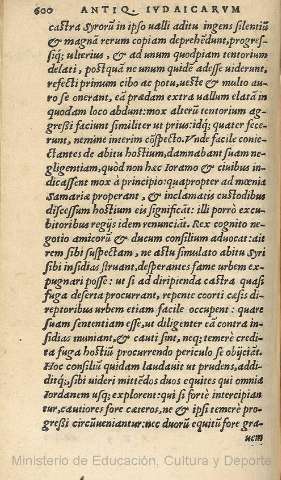 600 ANTIQ. IVDAICARVM
castra Syrorũ in ipso valli aditu ingens silentiũ
& magnã rerum copiam deprehẽdunt, progres-
siq; ulterius, & ad unum quodpiam tentorium
delati, postquã ne unum quidẽ adesse uiderunt,
refecti primum cibo ac potu, ueste & multo au-
ro se onerant, eã prædam extra uallum elatã in
quodam loco abdunt: mox alterũ tentorium ag-
gressi faciunt similiter ut prius: idq; quater fece-
runt, nemine interim cõspecto. Vnde facile conie-
ctantes de abitu hostium, damnabant suam ne-
gligentiam, quòd non hæc Ioramo & ciuibus in-
dicassent mox à principio: quapropter ad mœnia
Samariæ properant, & inclamatis custodibus
discessum hostium eis significãt: illi porrò excu-
bitoribus regijs idem renunciãt. Rex cognito ne-
gotio amicorũ & ducum consilium aduocat: ait
rem sibi suspectam, ne astu simulato abitu Syri
sibi insidias struant, desperantes fame urbem ex-
pugnari posse: ut si ad diripienda castra quasi
fuga deserta procurrant, repente coorti cæsis di-
reptoribus urbem etiam facile occupent: quare
suam sententiam esse, ut diligenter eã contra in-
sidias muniant, & cauti sint, neq; temerè credi-
ta fuga hostiũ procurrendo periculo se obijciãt.
Hoc consiliũ quidam laudauit ut prudens, addi-
ditq;, sibi uideri mittẽdos duos equites qui omnia
Iordanem usq; explorent: qui si fortè intercipian
tur, cautiores fore cæteros, ne & ipsi temerè pro-
gressi circũueniantur: nec duorũ equitũ fore gra-
uem
Ministerio de Educación, Cultura y Deporte